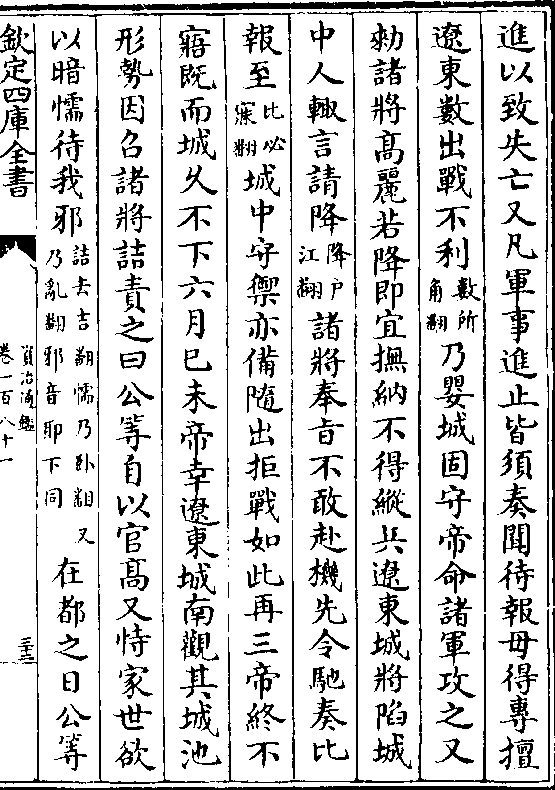 進以致失亡又凡軍事進止皆須奏聞待報毋得專擅
遼東數出戰不利數所角翻乃嬰城固守帝命諸軍攻之又
勑諸將高麗若降即宜撫納不得縱兵遼東城將陷城
中人輙言請降降户江翻諸將奉旨不敢赴機先令馳奏比
報至比必寐翻城中守禦亦備隨出拒戰如此再三帝終不
寤既而城乆不下六月巳未帝幸遼東城南觀其城池
形勢因召諸將詰責之曰公等自以官高又恃家世欲
以暗懦待我邪詰去吉翻懦乃卧翻又乃亂翻邪音耶下同在都之日公等
欽定四庫全書
資治通鑑
卷一百八十一
三十六